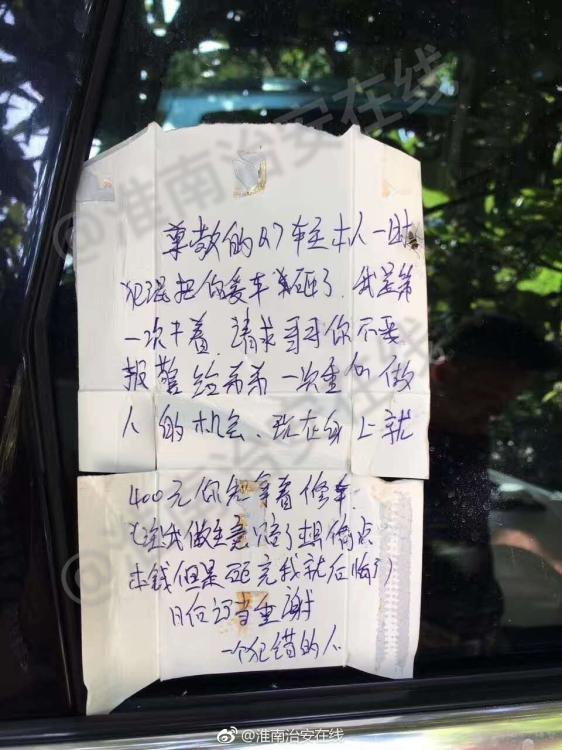 尊敬的A7车主本人一时
犯混把你爱车给砸了.我是第
一次干着.请求哥哥你不要
报警给弟弟一次重份做
人的机会、现在身上就
400元你先拿着修车.
我做生意赔了想偷点
本钱但是砸完我就后悔了
日后讠当重谢
一个犯错的人
@淮南治安在线
@淮南治安在线
@淮南治安在线